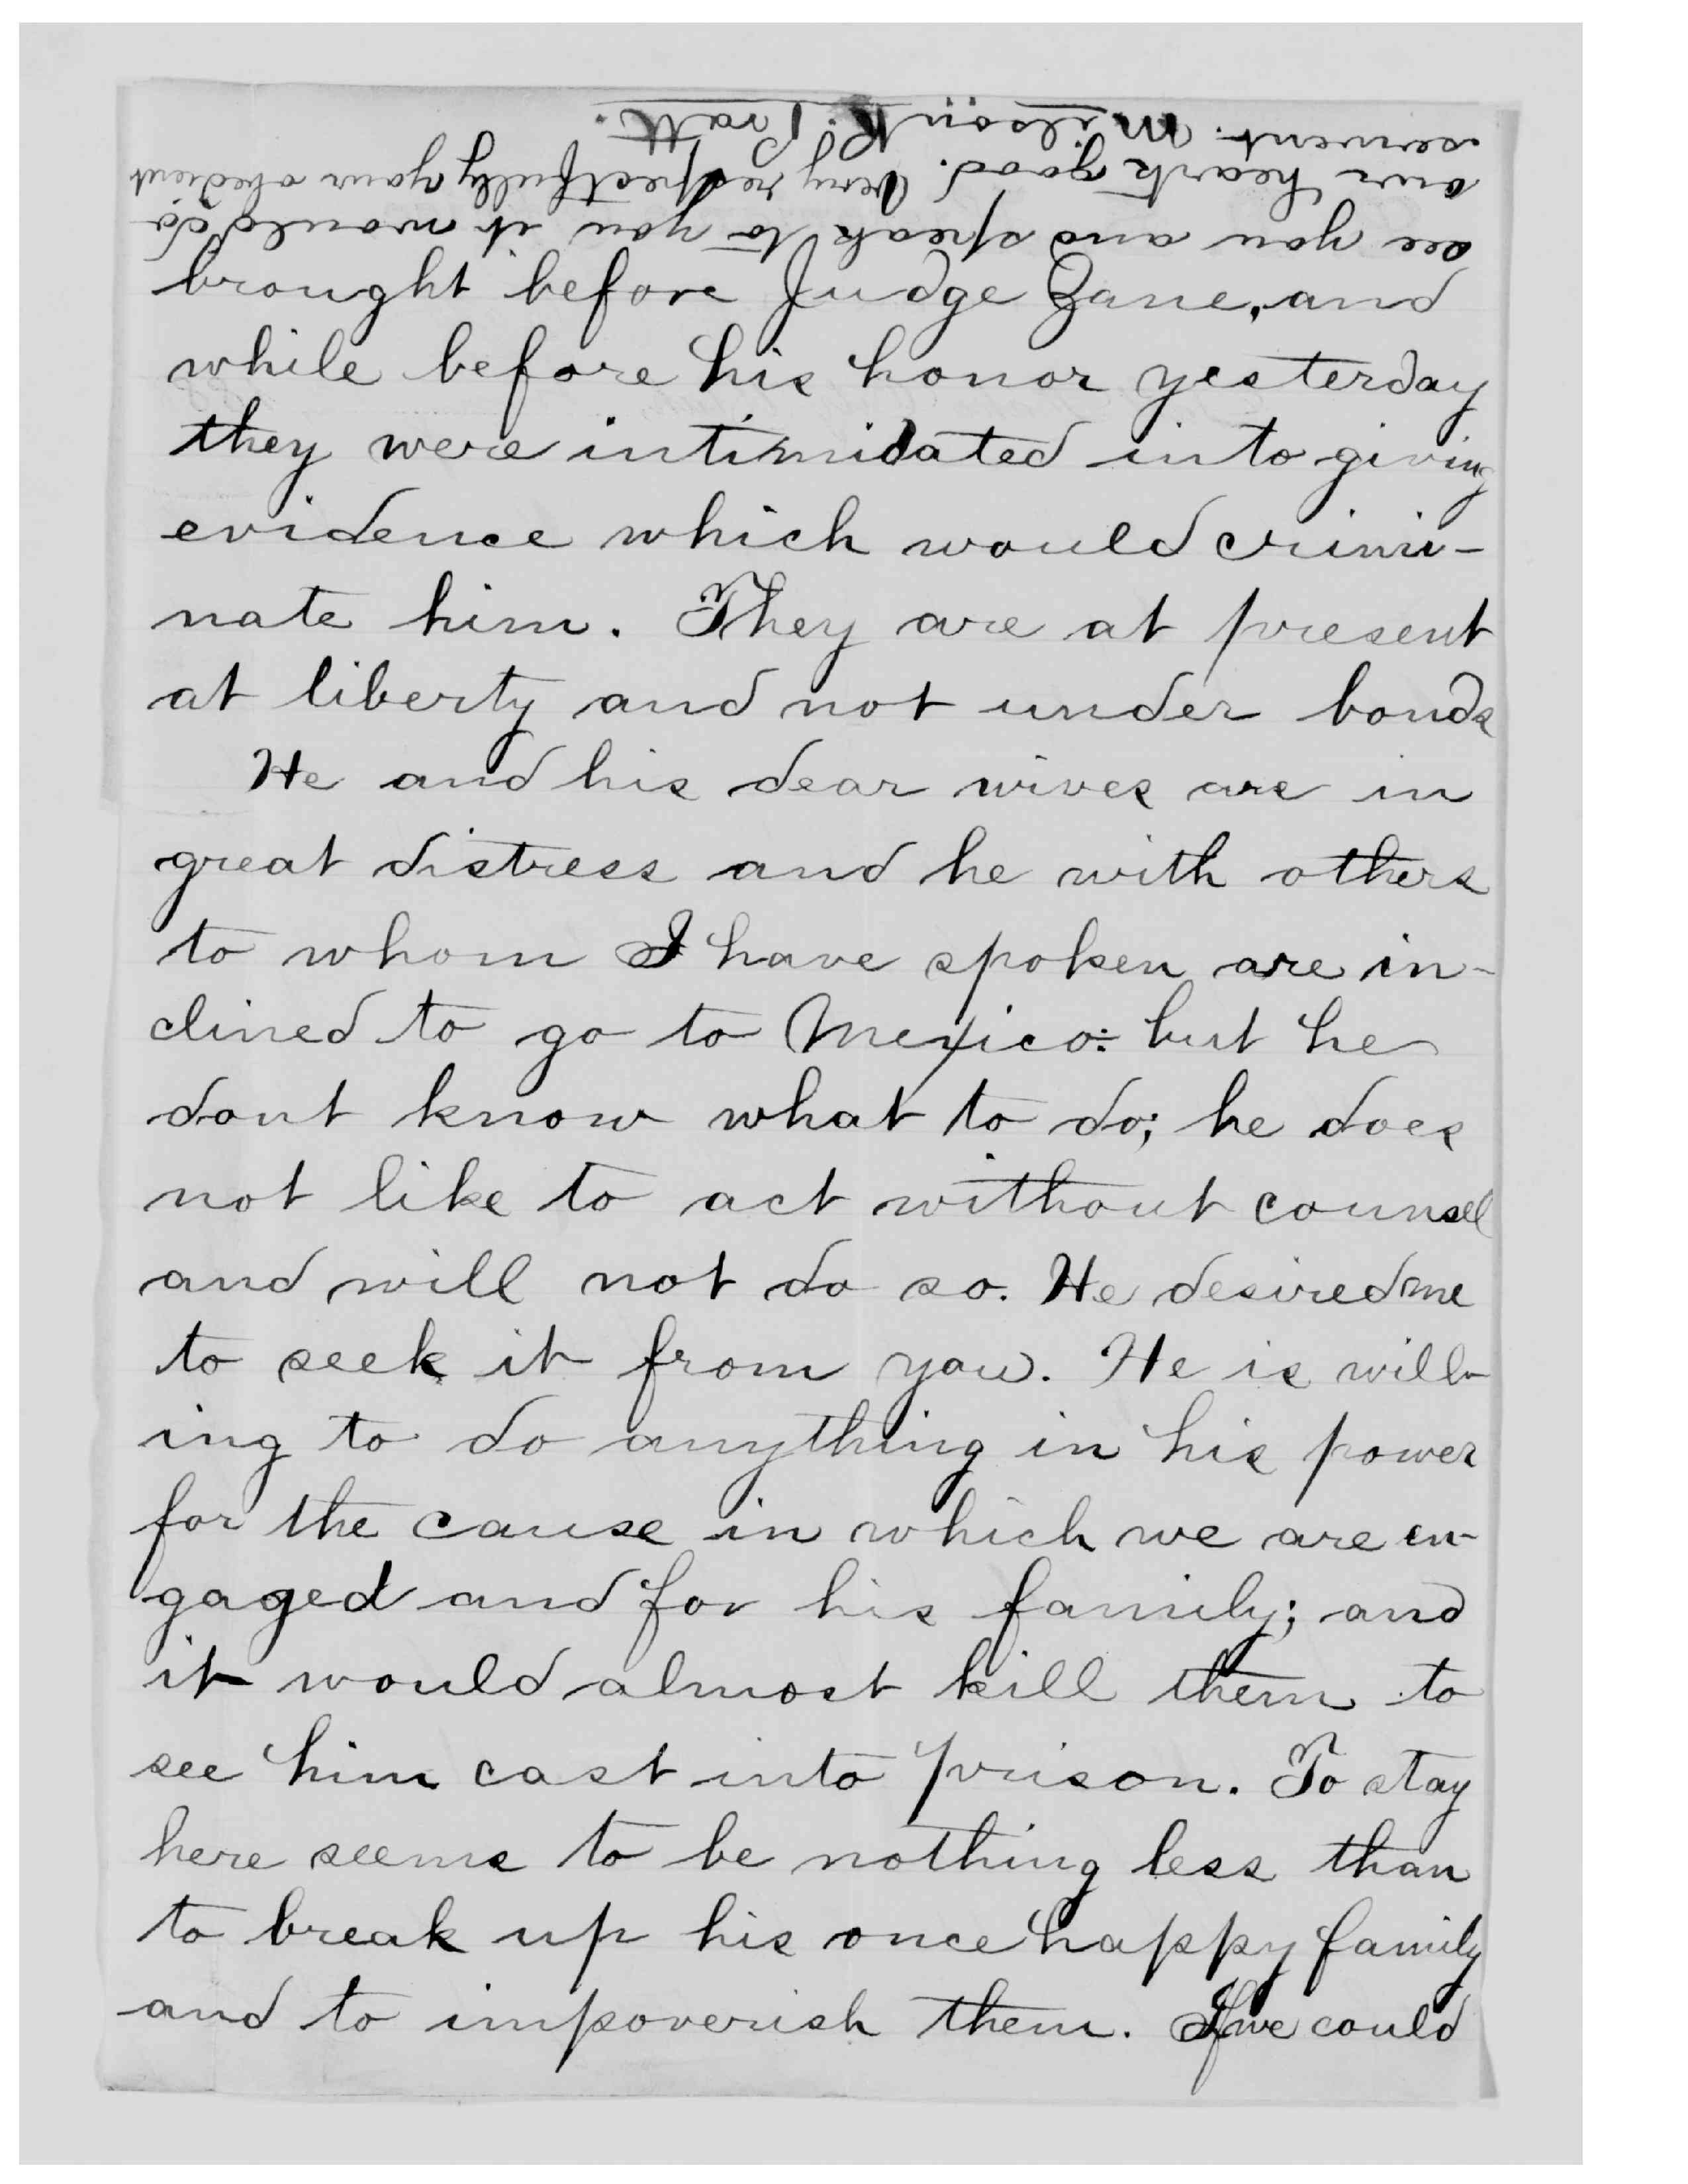 brought before Judge Zane, and
while before his honor yesterday
they were intimidated into giving
evidence which would crimi-
nate him. They are at present
at liberty and not under bonds
He and his dear wives are in
great distress and he with others
to whom I have spoken are in-
clined to go to Mexico: but he
dont know what to do; he does
not like to act without counsel
and will not do so. He desired me
to seek it from you. He is will-
ing to do anything in his power
for the cause in which we are en-
gaged and for his family; and
it would almost kill them to
see him cast into prison. To stay
here seems to be nothing less than
to break up his once happy family
and to impoverish them. If we could
see you and speak to you it would do
our hearts good. Very respectfully your obedient
servent. Milson R. Pratt.